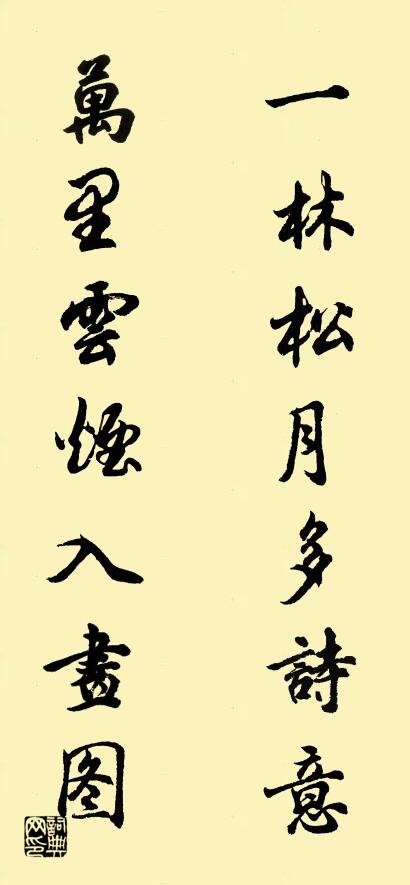 一林松月多詩意
萬里雲煙入畫图
詞典网印